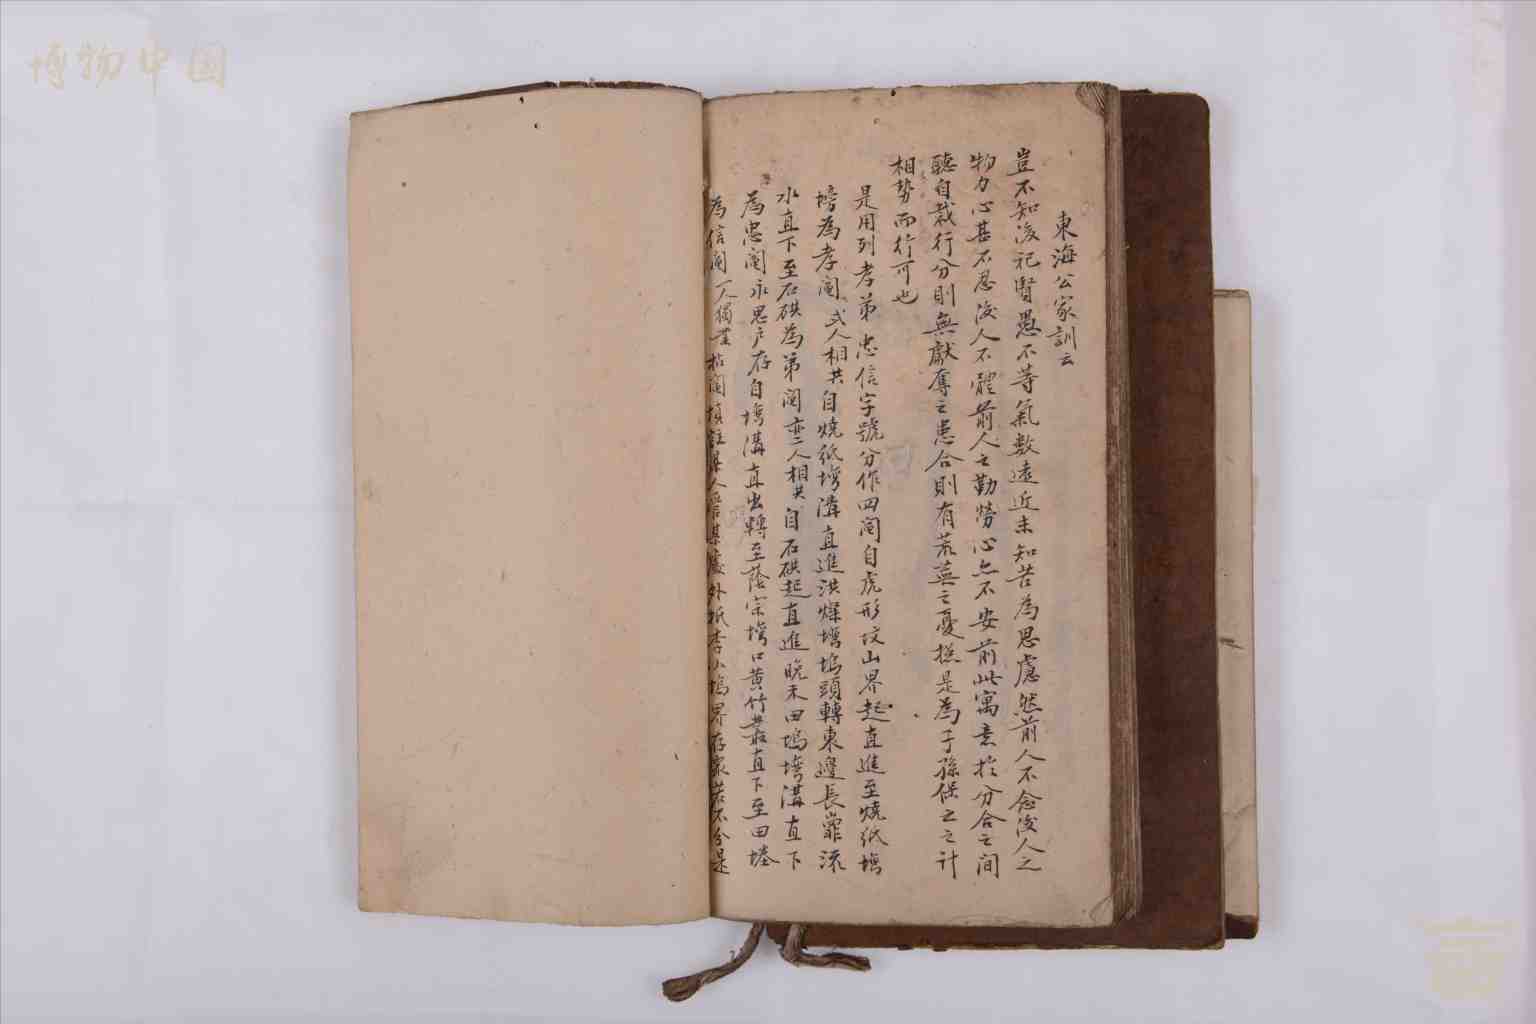 東海公家訓云
豈不知後祀賢愚不等氣數遠近未知苦為思慮然前人不念後人之
物力心甚不忍後人不體前人之勤勞心亦不安前此寓意於分合之间
聽自裁行分則無獻奪之患合則有荒蕪之憂揔是為子孫保之之計
相势而行可也
是用列孝弟忠信字號分作四阄自虎形坟山界起直進至燒纸塆
塝為孝阄 弍人相共自燒纸塆溝直進洪燦塆塢頭轉東邊長灣流
水直下至石硔為弟阄 二人相共自石硔起直進晚禾田塢塆溝直下
為忠阄永思户存自塆溝直出轉至蔭宗塆口黄竹叢直下至田塝
為信阄一人獨業拈阄填註某人管某處外抵李小塢界存衆若不分是
博物中国